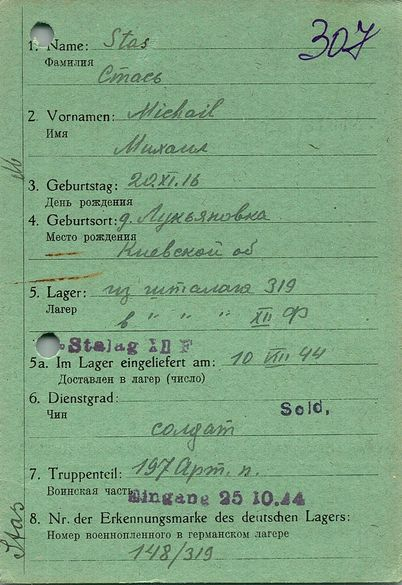 307
1. Name: Stas
Фамилия
Стась
2. Vornamen: Michail
Имя
Михаил
3. Geburtstag: 20.XI.16
День рождения
4. Geburtsort: д. Лукьяновка
Место рождения
Киевской об
5. Lager: из шталага 319
Лагер
в " " " XII Ф
Stalag XII F
5a. Im Lager eingeliefert am: 10 VIII 44
Доставлен в лагер (число)
6. Dienstgrad:
Чин
Sold.
солдат
7. Truppenteil: 197 Арт. п.
Воинская часть
Eingang 25 10.44
8. Nr. der Erkennungsmarke des deutschen Lagers:
Номер военнопленного в германском лагере
148/319
Stas